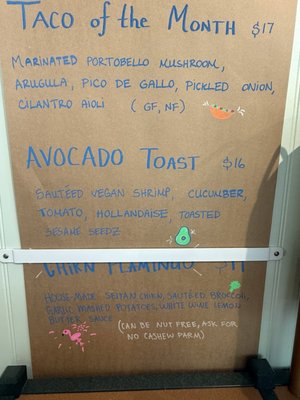 TACO of the MONTH $17
MARINATED PORTOBELLO MUSHROOM,
ARUGULA, PICO DE GALLO, PICKLED ONION,
CILANTRO AIOLI (GF, NF)
AVOCADO TOAST $16
SAUTÉED VEGAN SHRIMP, CUCUMBER,
TOMATO, HOLLANDAISE, TOASTED
SESAME SEEDZ
CHIKN FLAMINGO
HOUSE-MADE SEITAN CHIKN, SAUTÉED BROCOLI,
GARLIC MASHED POTATOES, WHITE WINE LEMON
BUTTER SAUCE (CAN BE NUT FREE, ASK FOR
NO CASHEW PARM)